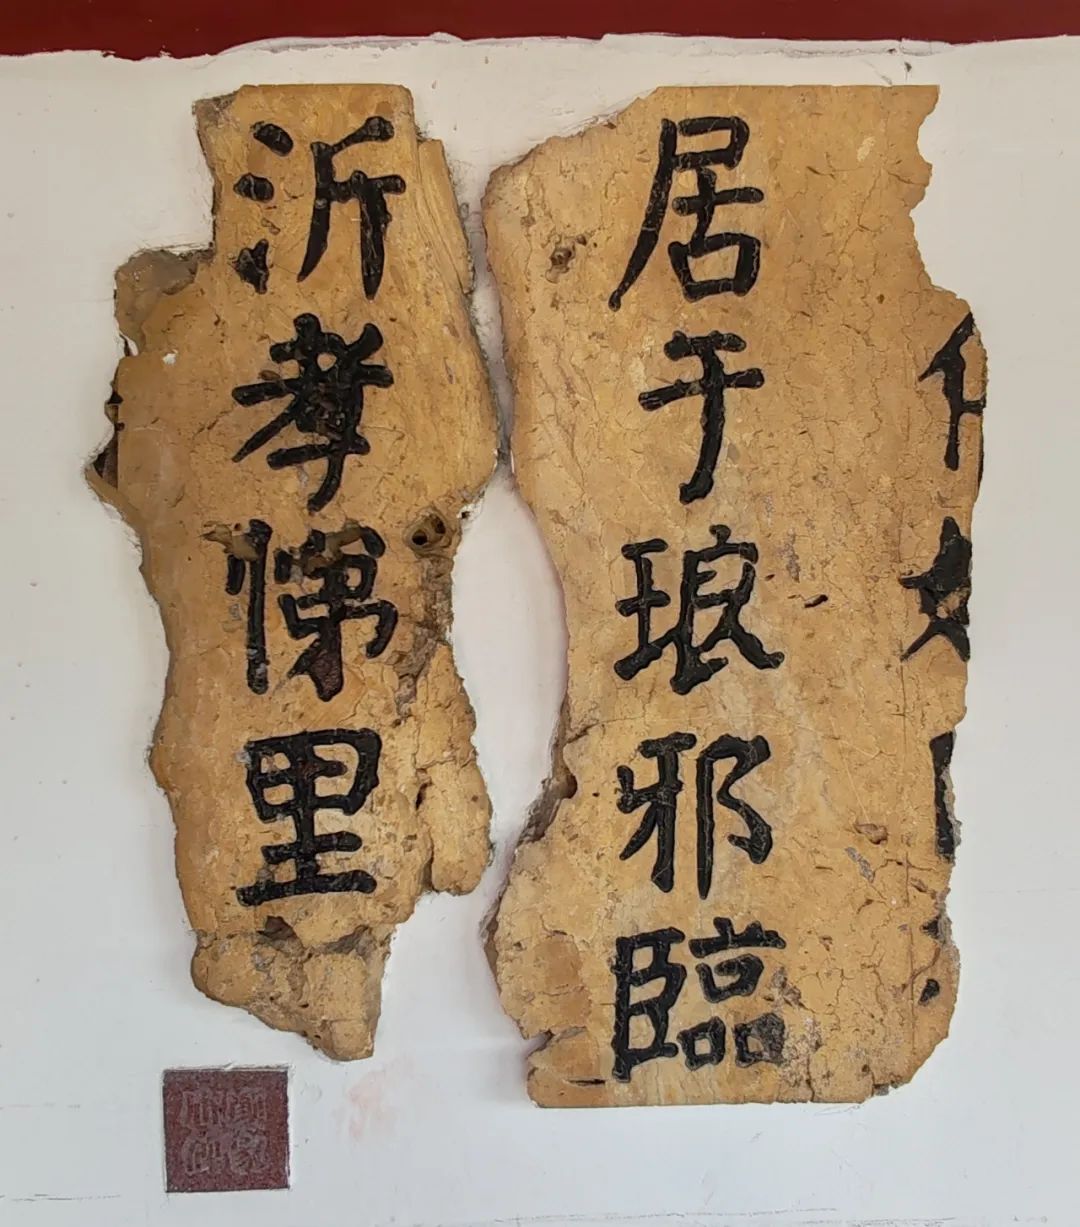 居于琅邪臨
沂孝悌里